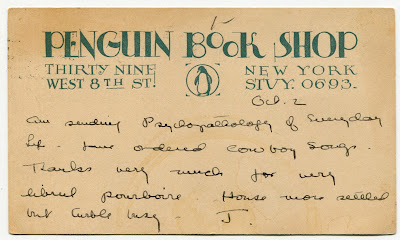 PENGUIN BOOK SHOP
THIRTY NINE
WEST 8TH ST.
NEW YORK
STUY. 0693.
Oct. 2
Am sending Psychopathology of Everyday
Life. Have ordered Cowboy Songs.
Thanks very much for very
librul pourboire. House more settled
but turble busy J.